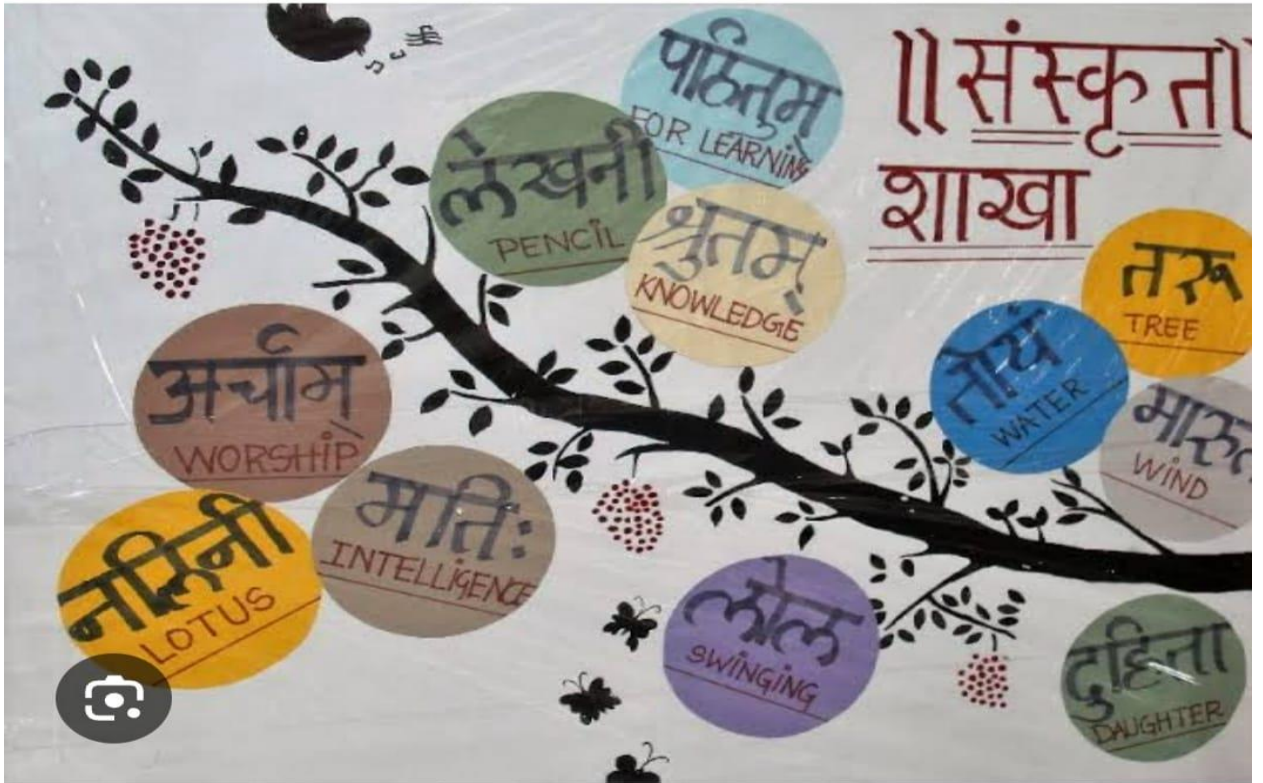 ॥ संस्कृत ॥
शाखा
पठितुम्
FOR LEARNING
लेखनी
PENCIL
श्रुतम्
KNOWLEDGE
तरू
TREE
तोयं
WATER
WIND
अर्चाम्
WORSHIP
मतिः
INTELLIGENCE
नलिनी
LOTUS
लोल
SWINGING
दुहिता
DAUGHTER